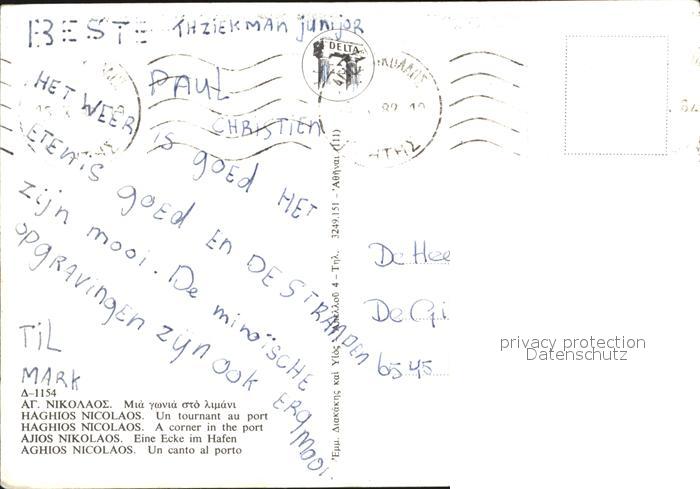 BESTE THZIEKMAN junijor
PAUL
CHRISTIEN
HET WEER is goed HET
ETEN is goed EN DE STRANDEN
zijn mooi. De minoïsche
opgravingen zijn ook ERg mooi.
TiL
MARK
DELTA
82
De Hee
De Gi
6545
privacy protection
Datenschutz
Δ-1154
ΑΓ. ΝΙΚΟΛΑΟΣ. Μιά γωνιά στό λιμάνι
HAGHIOS NICOLAOS. Un tournant au port
HAGHIOS NICOLAOS. A corner in the port
AJIOS NIKOLAOS. Eine Ecke im Hafen
AGHIOS NICOLAOS. Un canto al porto
Ἐμμ. Διακάκης καί Υἱός 4 - Τηλ. 3249.151 - Ἀθῆναι (111)